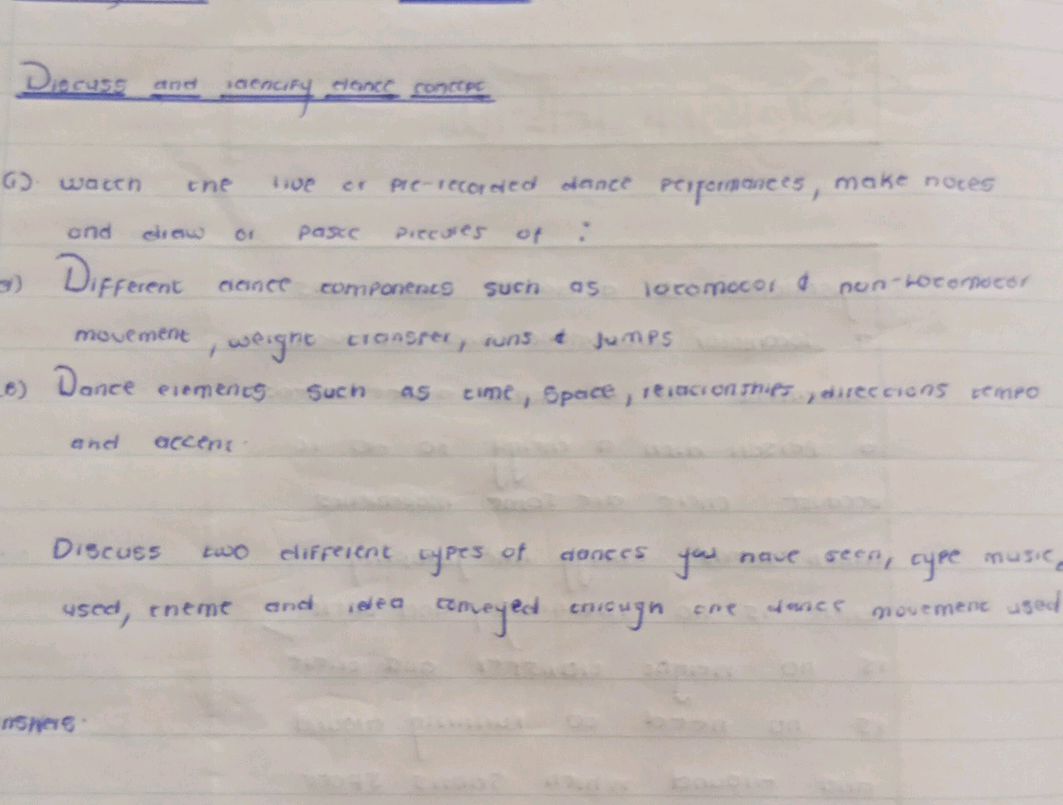 Discuss and identify dance concept
G). watch the live or pre-recorded dance performances, make notes
and draw or paste pictures of :
a) Different dance components such as locomotor & non-Locomotor
movement, weight transfer, runs & Jumps
B) Dance elements such as time, space, relationships, directions tempo
and accent.
Discuss two different types of dances you have seen, type music
used, theme and idea conveyed through the dance movement used
nswers.